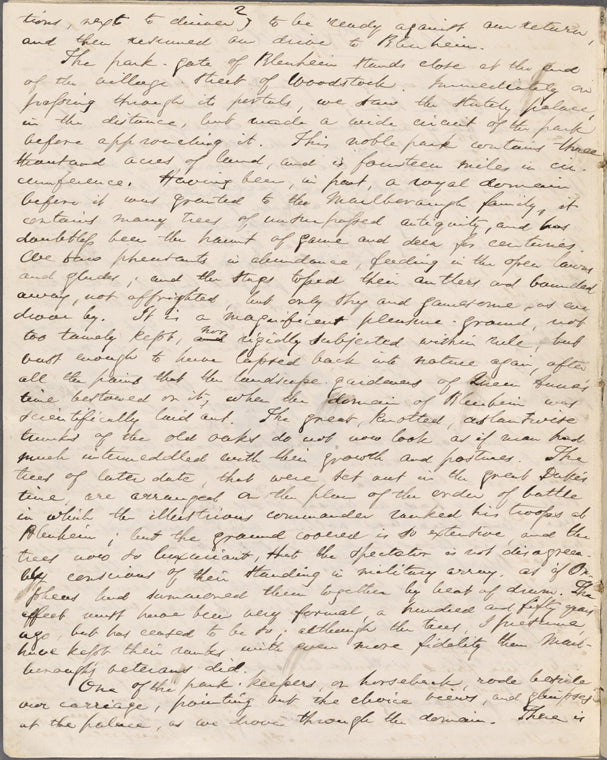 2
tions, next to dinner) to be ready against our return,
and then resumed our drive to Blenheim.
The park-gate of Blenheim stands close at the end
of the village street of Woodstock. Immediately on
passing through its portals, we saw the stately palace,
in the distance, but made a wide circuit of the park
before approaching it. This noble park contains three
thousand acres of land, and is fourteen miles in cir-
cumference. Having been, in part, a royal domain
before it was granted to the Marlborough family, it
contains many trees of unsurpassed antiquity, and has
doubtless been the haunt of game and deer for centuries.
We saw pheasants in abundance, feeding in the open lawns
and glades; and the stags tossed their antlers and bounded
away, not affrighted, but only shy and gamesome, as we
drove by. It is a magnificent pleasure-ground, not
too tamely kept, nor rigidly subjected within rule, but
vast enough to have lapsed back into nature again, after
all the pains that the landscape-gardeners of Queen Anne's
time bestowed on it, when the domain of Blenheim was
scientifically laid out. The great, knotted, aslantwise
trunks of the old oaks do not now look as if man had
much intermeddled with their growth and postures. The
trees of later date, that were set out in the great Duke's
time, are arranged on the plan of the order of battle
in which the illustrious commander ranked his troops at
Blenheim; but the ground covered is so extensive, and the
trees now so luxuriant, that the spectator is not disagreea-
bly conscious of their standing in military array, as if Or-
pheus had summoned them together by beat of drum. The
effect must have been very formal, a hundred and fifty years
ago, but has ceased to be so; although the trees, I presume
have kept their ranks with even more fidelity than Marl-
borough's veterans did.
One of the park-keepers, on horseback, rode beside
our carriage, pointing out the choice views, and glimpses
at the palace, as we drove through the domain. There is